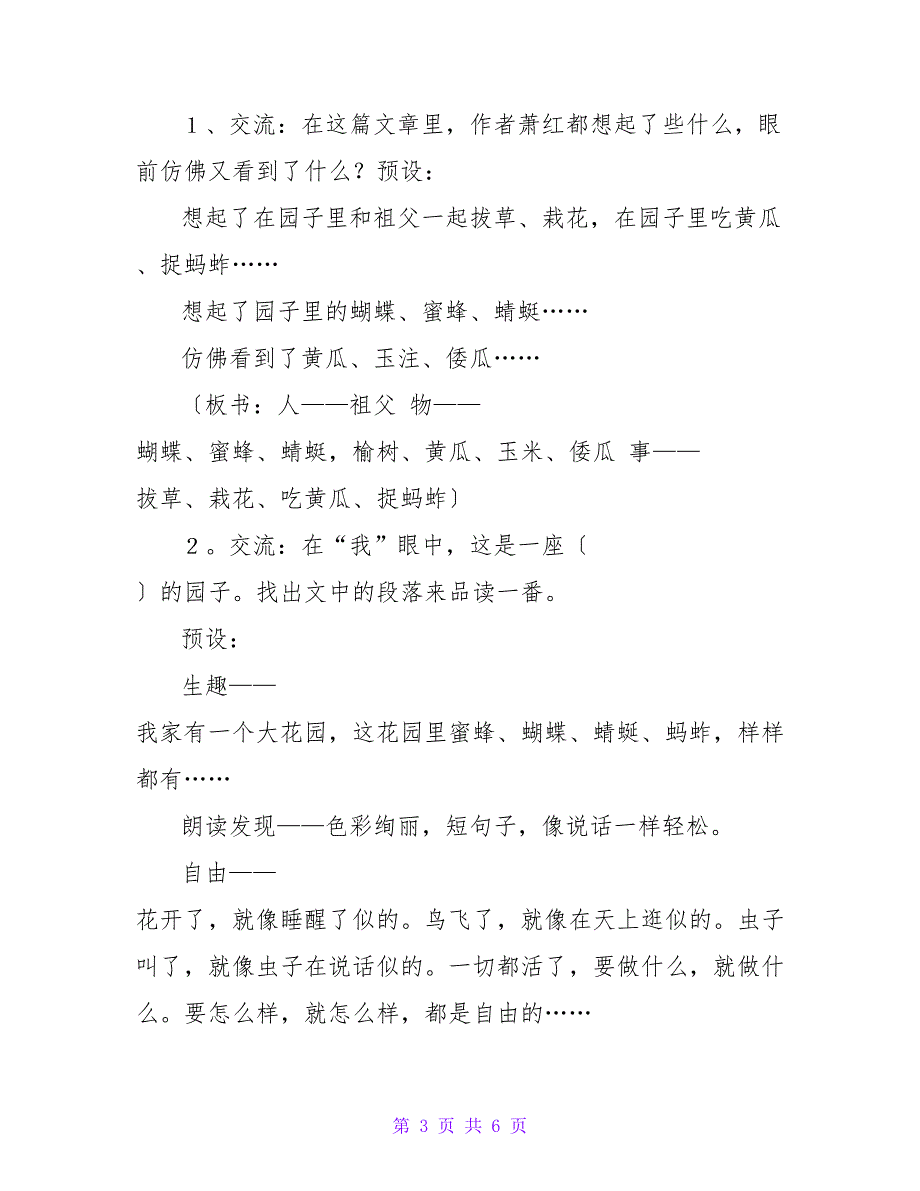 １、交流：在这篇文章里，作者萧红都想起了些什么，眼
前仿佛又看到了什么？预设：
想起了在园子里和祖父一起拔草、栽花，在园子里吃黄瓜
、捉蚂蚱……
想起了园子里的蝴蝶、蜜蜂、蜻蜓……
仿佛看到了黄瓜、玉注、倭瓜……
〔板书：人——祖父 物——
蝴蝶、蜜蜂、蜻蜓，榆树、黄瓜、玉米、倭瓜 事——
拔草、栽花、吃黄瓜、捉蚂蚱〕
２。交流：在“我”眼中，这是一座〔
〕的园子。找出文中的段落来品读一番。
预设：
生趣——
我家有一个大花园，这花园里蜜蜂、蝴蝶、蜻蜒、蚂蚱，样样
都有……
朗读发现——色彩绚丽，短句子，像说话一样轻松。
自由——
花开了，就像睡醒了似的。鸟飞了，就像在天上逛似的。虫子
叫了，就像虫子在说话似的。一切都活了，要做什么，就做什
么。要怎么样，就怎么样，都是自由的……
第 3 页 共 6 页